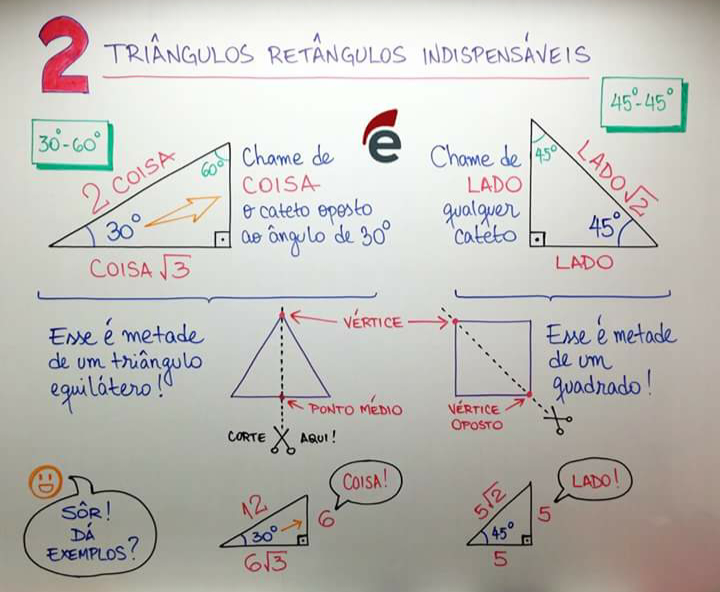 2 TRIÂNGULOS RETÂNGULOS INDISPENSÁVEIS
30°-60°
2 COISA
60°
30°
COISA √3
Chame de
COISA
o cateto oposto
ao ângulo de 30°
e
45°-45°
Chame de
LADO
qualquer
cateto
45°
LADO√2
45°
LADO
Esse é metade
de um triângulo
equilátero!
VÉRTICE
PONTO MÉDIO
CORTE AQUI!
VÉRTICE
OPOSTO
Esse é metade
de um
quadrado!
SÔR!
DÁ
EXEMPLOS?
12
30°
6
6√3
COISA!
5√2
45°
5
5
LADO!